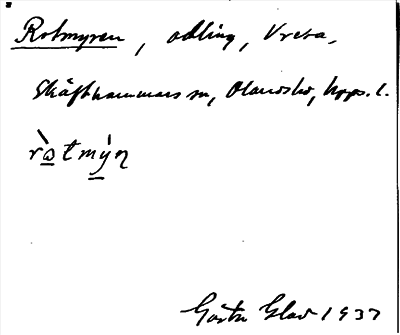 Rotmyren, odling, Vresa,
Skäfthammars sn, Olands hd, Upps. l.
ròtmýn
Gösta Glad 1937